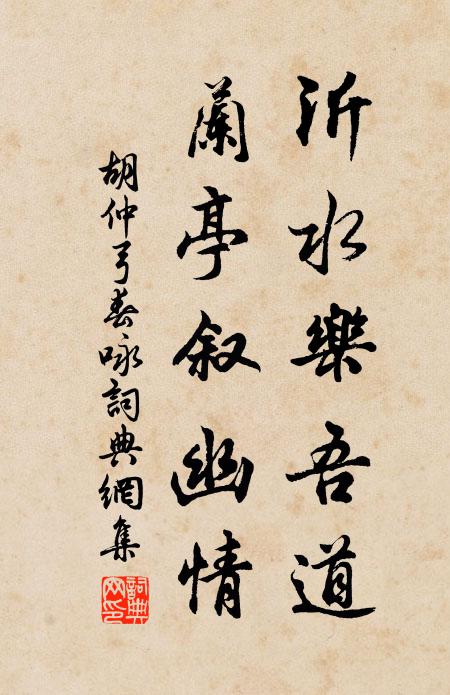 沂水樂吾道
蘭亭叙幽情
胡仲弓春咏詞典網集
詞典網印